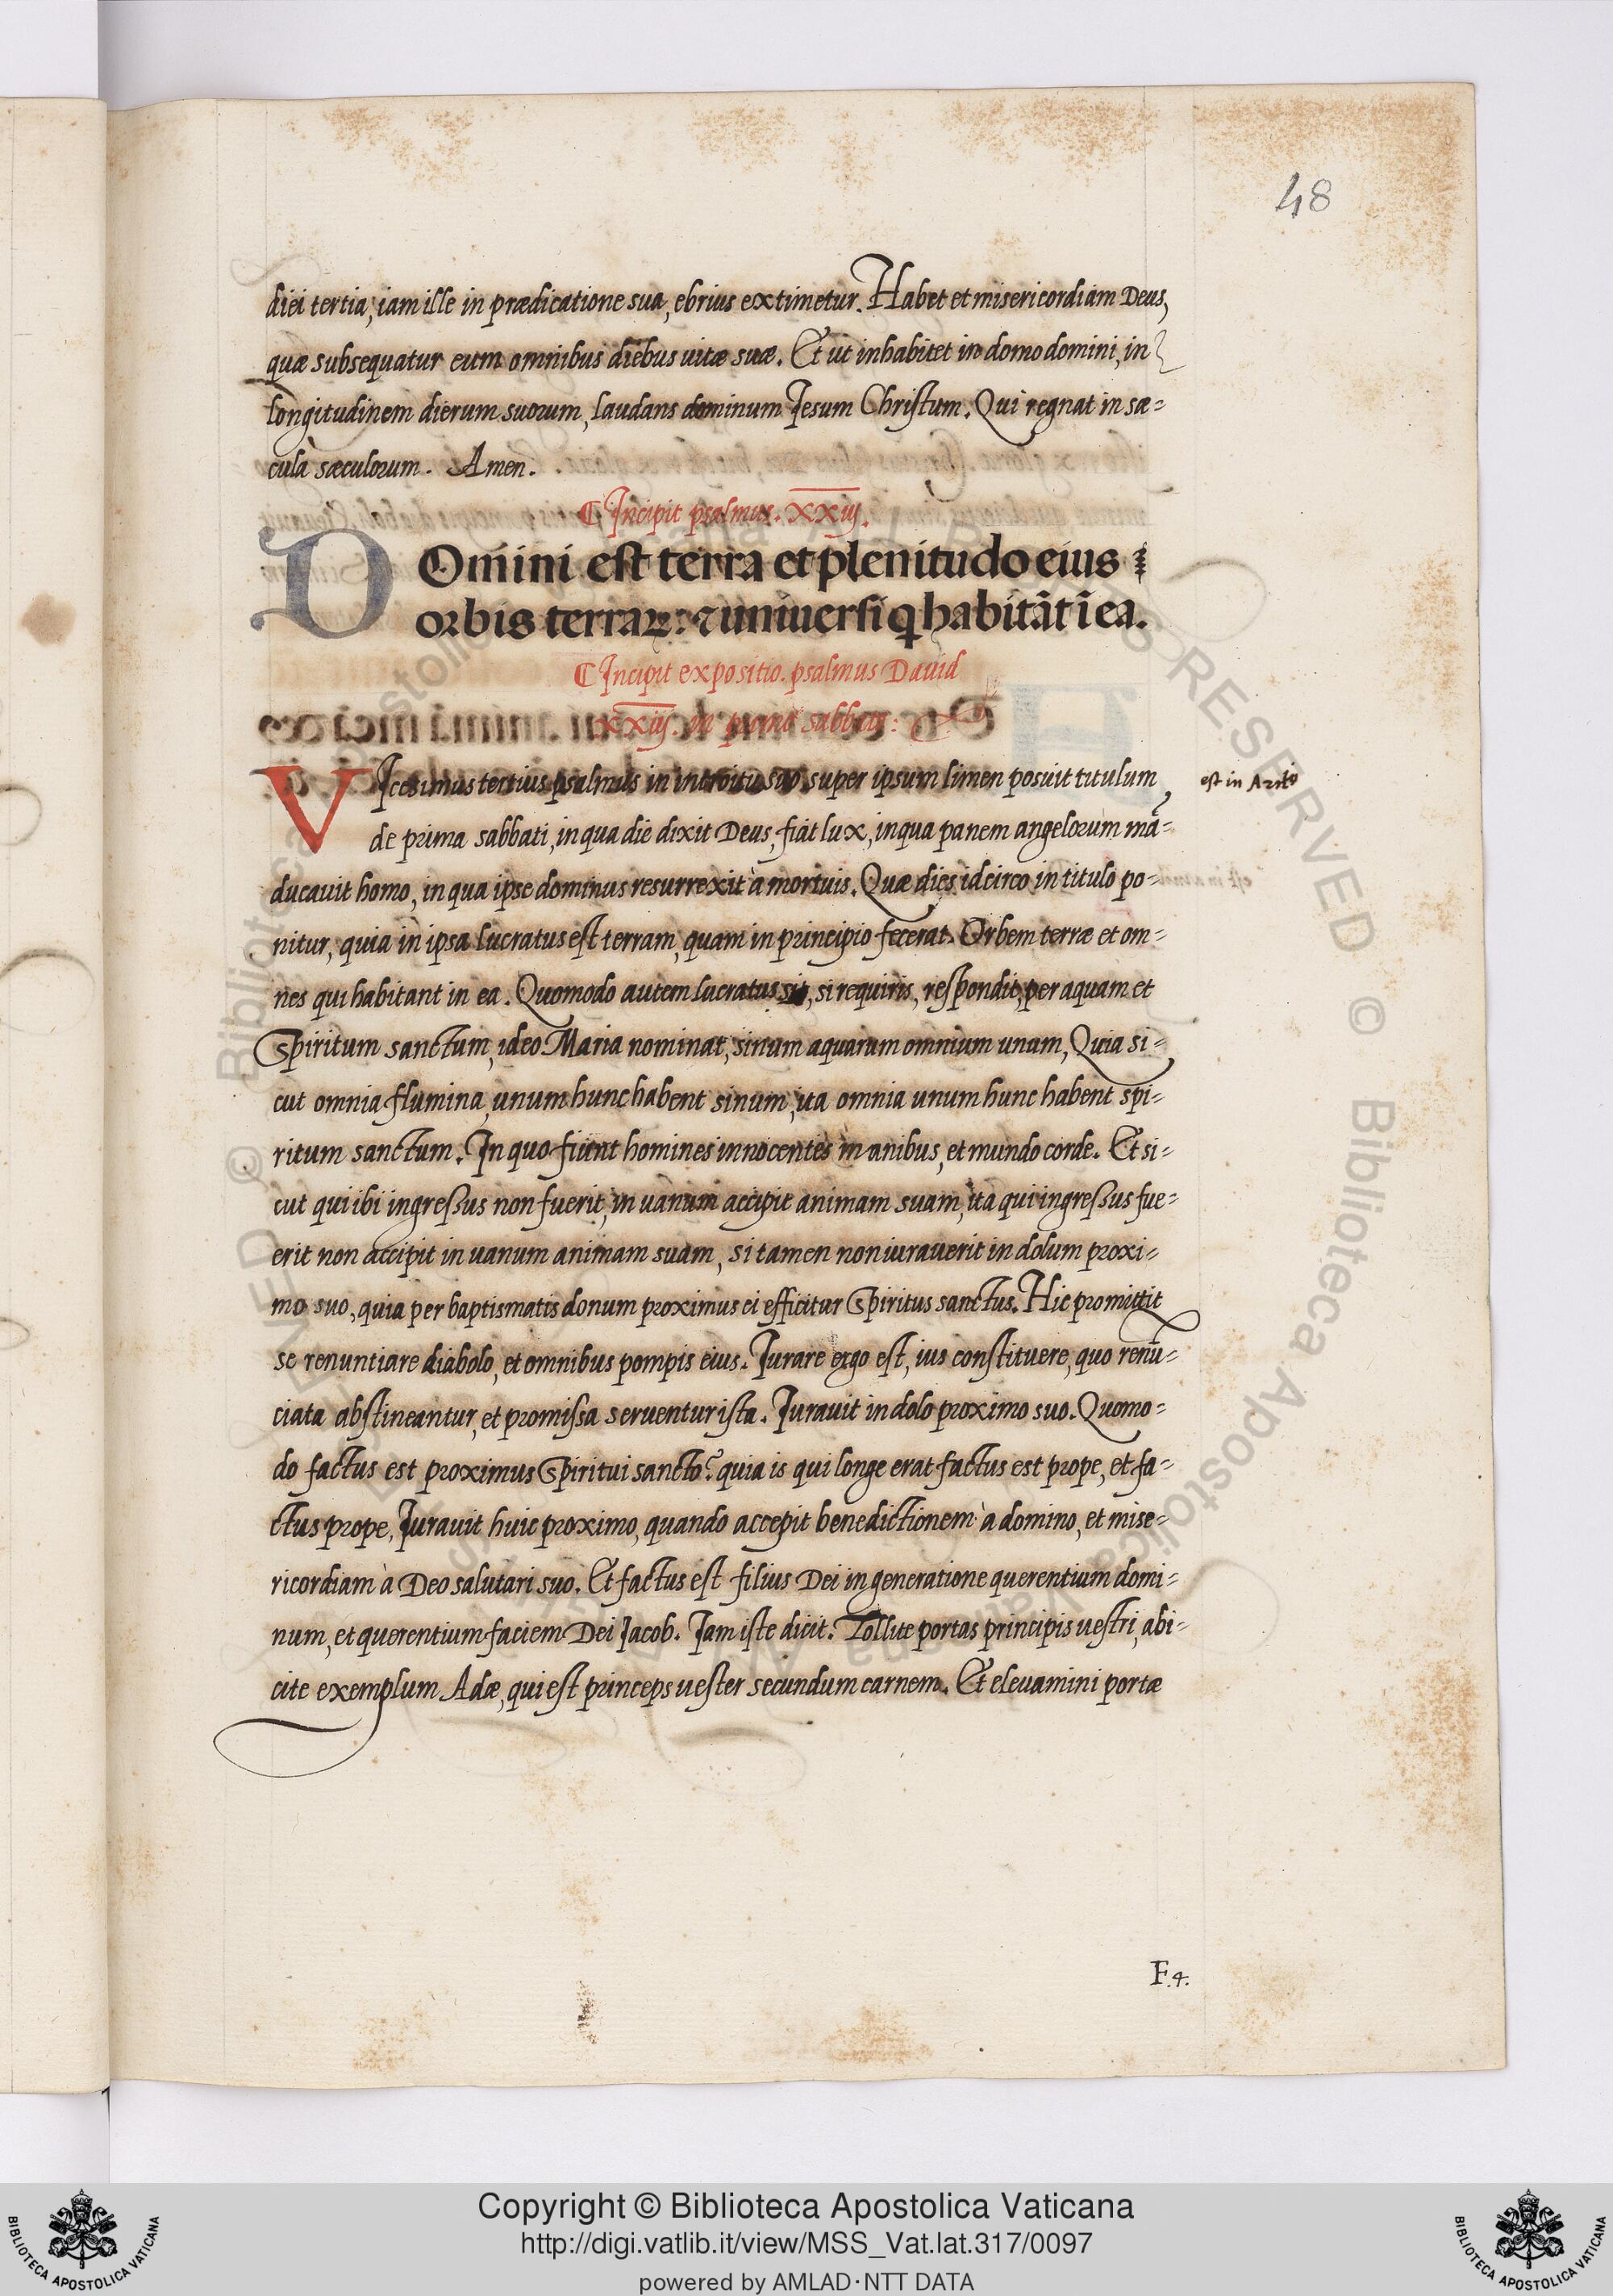 48
diei tertia, iam ille in prædicatione sua, ebrius extimetur. Habet et misericordiam Deus,
quæ subsequatur eum omnibus diebus uitæ suæ. Et ut inhabitet in domo domini, in
longitudinem dierum suorum, laudans dominum Jesum Christum. Qui regnat in sæ=
cula sæculorum. Amen.
¶ Incipit psalmus. XXIIJ.
DOmini est terra et plenitudo eius
orbis terraꝝ: ⁊ uniuersi q habitāt ī ea.
¶ Incipit expositio. psalmus Dauid
XXIIJ. in prima sabbati:
VIcesimus tertius psalmus in introitu suo, super ipsum limen posuit titulum
est in
de prima sabbati, in qua die dixit Deus, fiat lux, in qua panem angelorum mā=
ducauit homo, in qua ipse dominus resurrexit à mortuis. Quæ dies idcirco in titulo po=
nitur, quia in ipsa lucratus est terram, quam in principio fecerat. Orbem terræ et om=
nes qui habitant in ea. Quomodo autem lucratus sit, si requiris, respondit, per aquam et
Spiritum sanctum, ideo Maria nominat, sinum aquarum omnium unum, Quia si=
cut omnia flumina, unum hunc habent sinum, ita omnia unum hunc habent spi=
ritum sanctum. In quo fiunt homines innocentes manibus, et mundo corde. Et si=
cut qui ibi ingressus non fuerit, in uanum accipit animam suam, ita qui ingressus fue=
erit non accipit in uanum animam suam, si tamen non iurauerit in dolum proxi=
mo suo, quia per baptismatis donum proximus ei efficitur Spiritus sanctus. Hic promittit
se renuntiare diabolo, et omnibus pompis eius. Jurare ergo est, ius constituere, quo renū=
ciata abstineantur, et promissa seruentur ista. Jurauit in dolo proximo suo. Quomo=
do factus est proximus Spiritui sancto? quia is qui longe erat factus est prope, et fa=
ctus prope, Jurauit huic proximo, quando accepit benedictionem à domino, et mise=
ricordiam à Deo salutari suo. Et factus est filius Dei in generatione querentium domi=
num, et querentium faciem Dei Jacob. Jam iste dicit. Tollite portas principis uestri, abi=
cite exemplum Adæ, qui est princeps uester secundum carnem. Et eleuamini portæ
F.4.
Copyright © Biblioteca Apostolica Vaticana
http://digi.vatlib.it/view/MSS_Vat.lat.317/0097
powered by AMLAD·NTT DATA
BIBLIOTECA APOSTOLICA VATICANA
BIBLIOTECA APOSTOLICA VATICANA